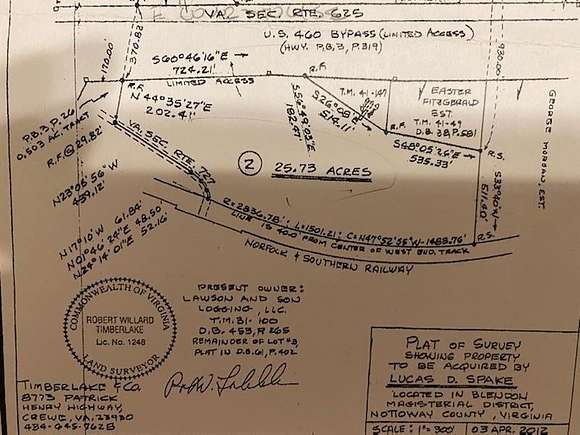 VA. SEC. RTE. 625
U.S. 460 BYPASS (LIMITED ACCESS)
(HWY. P.B. 3, P. 319)
170.00'
370.82'
930.00'
S60°46'16"E
724.21'
LIMITED ACCESS
R.F.
R.F.
N 44°35'27"E
202.41'
P.B. 3, P. 26
0.503 AC. TRACT
R.F. @ 29.82'
T.M. 41-
EASTER
FITZGERALD
EST.
T.M. 41-49
D.B. 38, P. 581
R.F.
S48°05'26"E
535.33'
R.S.
GEORGE
EST.
VA. SEC. RTE. 727
N23°08'56"W
439.12'
2
25.73 ACRES
511.90'
R.S.
N17°10'W 61.84'
N01°46'24"E 48.50'
N29°14'01"E 52.16'
R=2836.78' L=1501.21' C=N47°52'55"W-1483.76'
LINE IS 40.0' FROM CENTER OF WEST BND. TRACK
NORFOLK & SOUTHERN RAILWAY
COMMONWEALTH OF VIRGINIA
ROBERT WILLARD
TIMBERLAKE
Lic. No. 1248
LAND SURVEYOR
PRESENT OWNER:
LAWSON AND SON
LOGGING, LLC.
T.M. 31-100
D.B. 453, P. 265
REMAINDER OF LOT #3,
PLAT IN D.B. 61, P. 402
TIMBERLAKE & CO.
8773 PATRICK
HENRY HIGHWAY,
CREWE, VA. 23930
434-645-7628
PLAT OF SURVEY
SHOWING PROPERTY
TO BE ACQUIRED BY
LUCAS D. SPAKE
LOCATED IN BLENDON
MAGISTERIAL DISTRICT,
NOTTOWAY COUNTY, VIRGINIA
SCALE: 1"=300' 03 APR. 2012